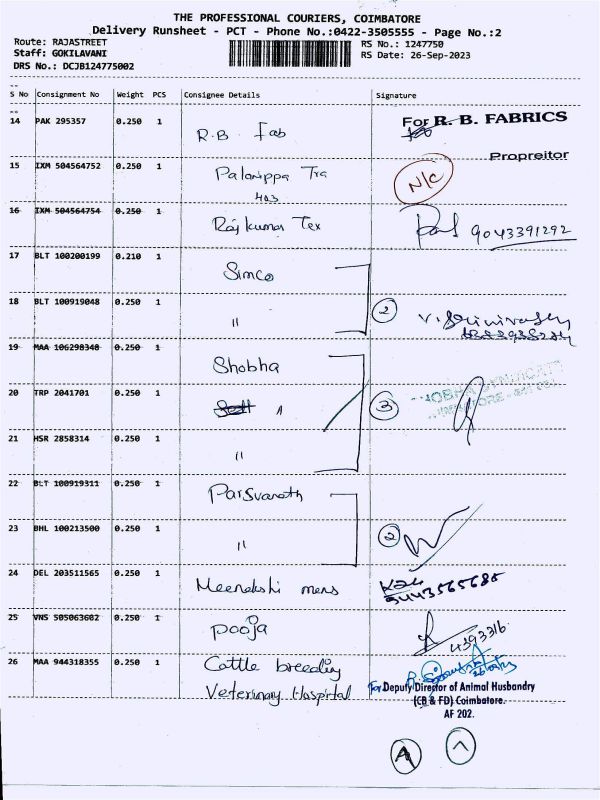 THE PROFESSIONAL COURIERS, COIMBATORE
Delivery Runsheet - PCT - Phone No.:0422-3505555 - Page No.:2
Route: RAJASTREET
RS No.: 1247750
Staff: GOKILAVANI
RS Date: 26-Sep-2023
DRS No.: DCJB124775002
S No Consignment No Weight PCS Consignee Details Signature
14 PAK 295357 0.250 1 R.B. Fab
For R. B. FABRICS
Propreitor
15 IXM 504564752 0.250 1 Palanippa Tra N/C
403
16 IXM 504564754 0.250 1 Raj kumar Tex 9043391292
17 BLT 100200199 0.210 1 Simco
18 BLT 100919048 0.250 1 " 2 V. Srinivasan
19 MAA 106298348 0.250 1 Shobha
20 TRP 2041701 0.250 1 3
21 HSR 2858314 0.250 1 "
22 BLT 100919311 0.250 1 Parsvanath
23 BHL 100213500 0.250 1 " 2
24 DEL 203511565 0.250 1 Meenakshi mens
9443565685
25 VNS 505063602 0.250 1 pooja 4393316
26 MAA 944318355 0.250 1 Cattle breeding
Veterinary Hospital
For Deputy Director of Animal Husbandry
(CB & FD) Coimbatore.
AF 202.
A